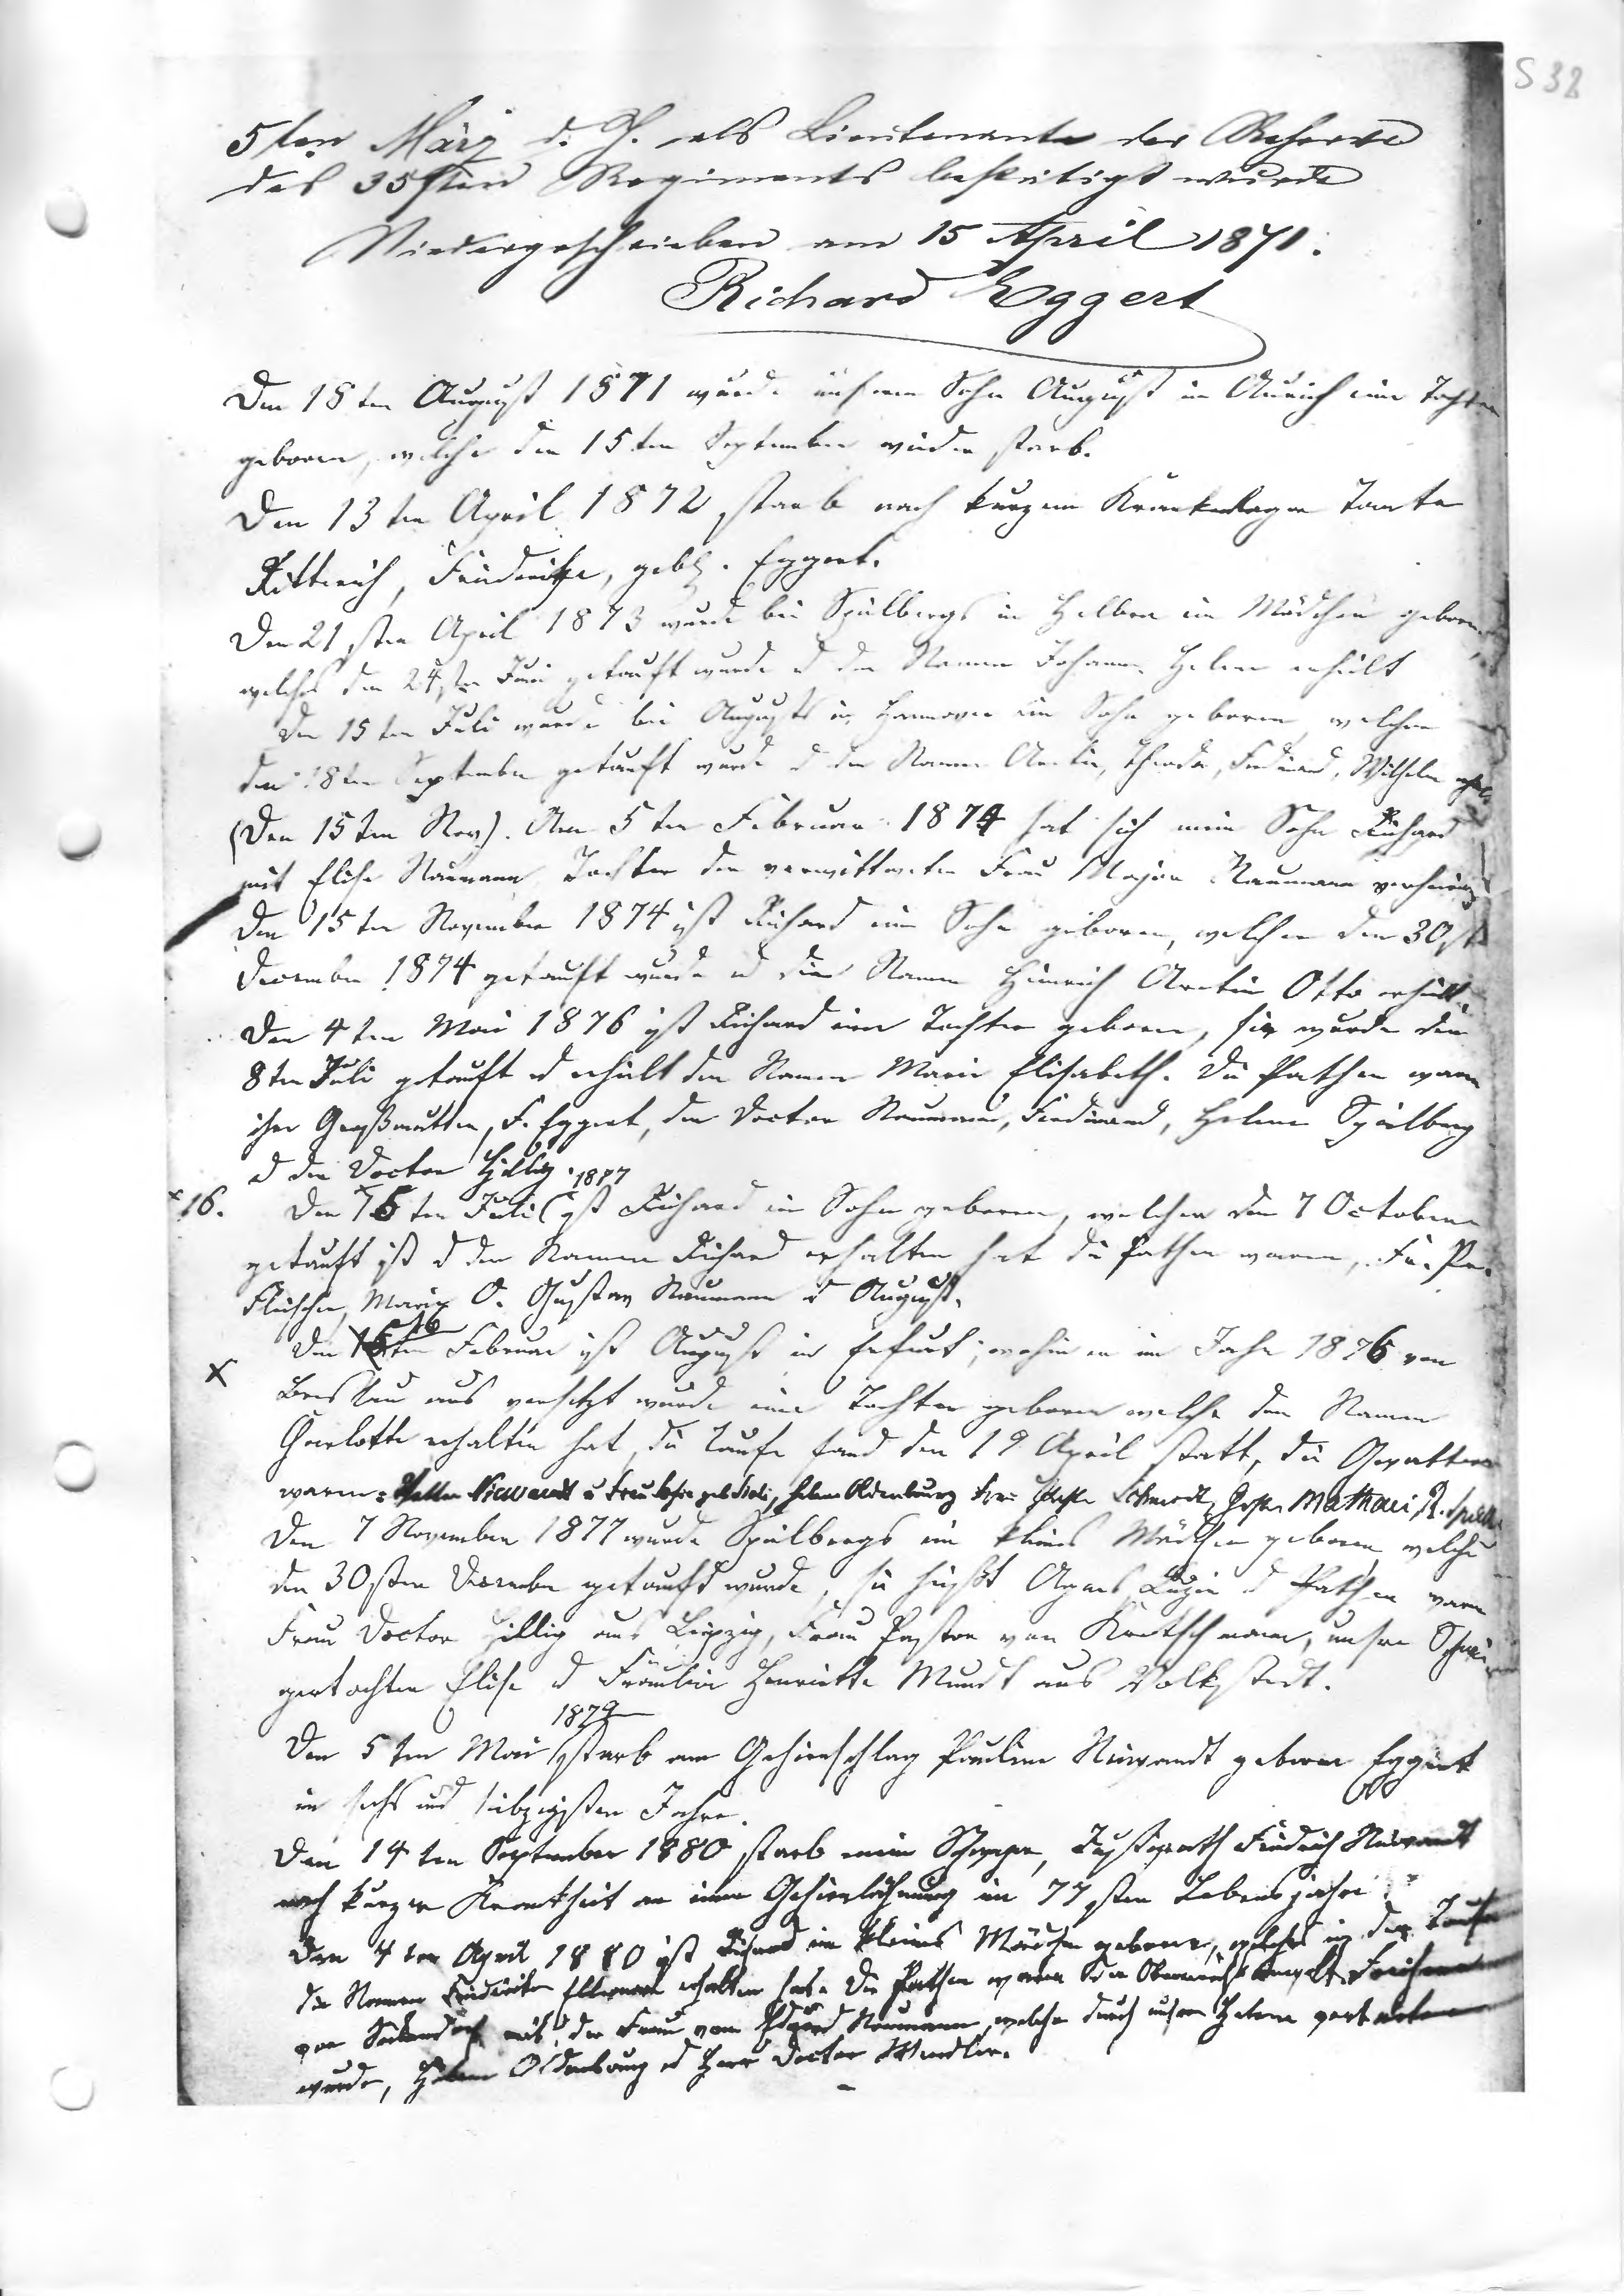 S 32
5ten März d. J. als Lieutenant der Reserve
des 35sten Regiments bestätigt wurde
Niedergeschrieben am 15 April 1871.
Richard Eggert
Den 18ten August 1871 wurde unserm Sohn August in Aurich eine Tochter
geboren, welche den 15ten September wieder starb.
Den 13ten April 1872 starb nach kurzem Krankenlager Tante
Ritterich, Friederike, geb. Eggert.
Den 21sten April 1873 wurde bei Spielbergs in Helbra ein Mädchen geboren,
welches den 24sten Juni getauft wurde u den Namen Johanne Helene erhielt
Den 15ten Juli wurde bei Augusts in Hannover ein Sohn geboren, welcher
den 18ten September getauft wurde u den Namen Theodor, Ferdinand, Wilhelm
(Den 15ten Nov). Am 5ten Februar 1874 hat sich mein Sohn Richard
mit Elise Naumann Tochter der verwittweten Frau Major Naumann
Den 15ten November 1874 ist Richard ein Sohn geboren, welcher den 30st
December 1874 getauft wurde u die Namen Heinrich Otto erhielt.
Den 4ten Mai 1876 ist Richard eine Tochter geboren, sie wurde den
8ten Juli getauft u erhielt den Namen Marie Elisabeth. Die Pathen waren
ihre Großmutter, F. Eggert, der Doctor Naumann, Ferdinand, Helene Spielberg
u der Doctor Hillig. 1877
x 16. Den 15ten Juli ist Richard ein Sohn geboren, welcher den 7 October
getauft ist u den Namen Richard erhalten hat die Pathen waren,
Marie O. Gustav Naumann u August.
16
x Den 15ten Februar ist August in Erfurt, wohin er im Jahr 1876 von
Breslau aus versetzt wurde eine Tochter geboren welche den Namen
Charlotte erhalten hat, die Taufe fand den 19 April statt, die Gevattern
waren: Niewandt u Frau Helene Oldenburg Schmidt, Mathaei,
Den 7 November 1877 wurde Spielbergs ein kleines Mädchen geboren welche
den 30sten December getauft wurde, sie heißt Agnes u Pathen waren
Frau Doctor Hillig aus Leipzig, Frau Pastor von Kretschmann, unsere Schwie
gertochter Elise u Fräulein Henriette Mundt aus Volkstedt.
1879
Den 5ten Mai starb am Gehirnschlag Pauline Niewandt geborne Eggert
im sechs und siebzigsten Jahre.
Den 14ten September 1880 starb mein Schwager, Justizrath Friedrich Niewandt
nach kurzer Krankheit an einer Gehirnlähmung im 77sten Lebensjahre.
Den 4ten April 1880 ist Richard ein kleines Mädchen geboren, welches in der Taufe
die Namen Friederike erhalten hat. Die Pathen waren
von die Frau von Eduard Naumann, welche durch unsere Helene vertreten
wurde, Helene Oldenburg u Herr Doctor